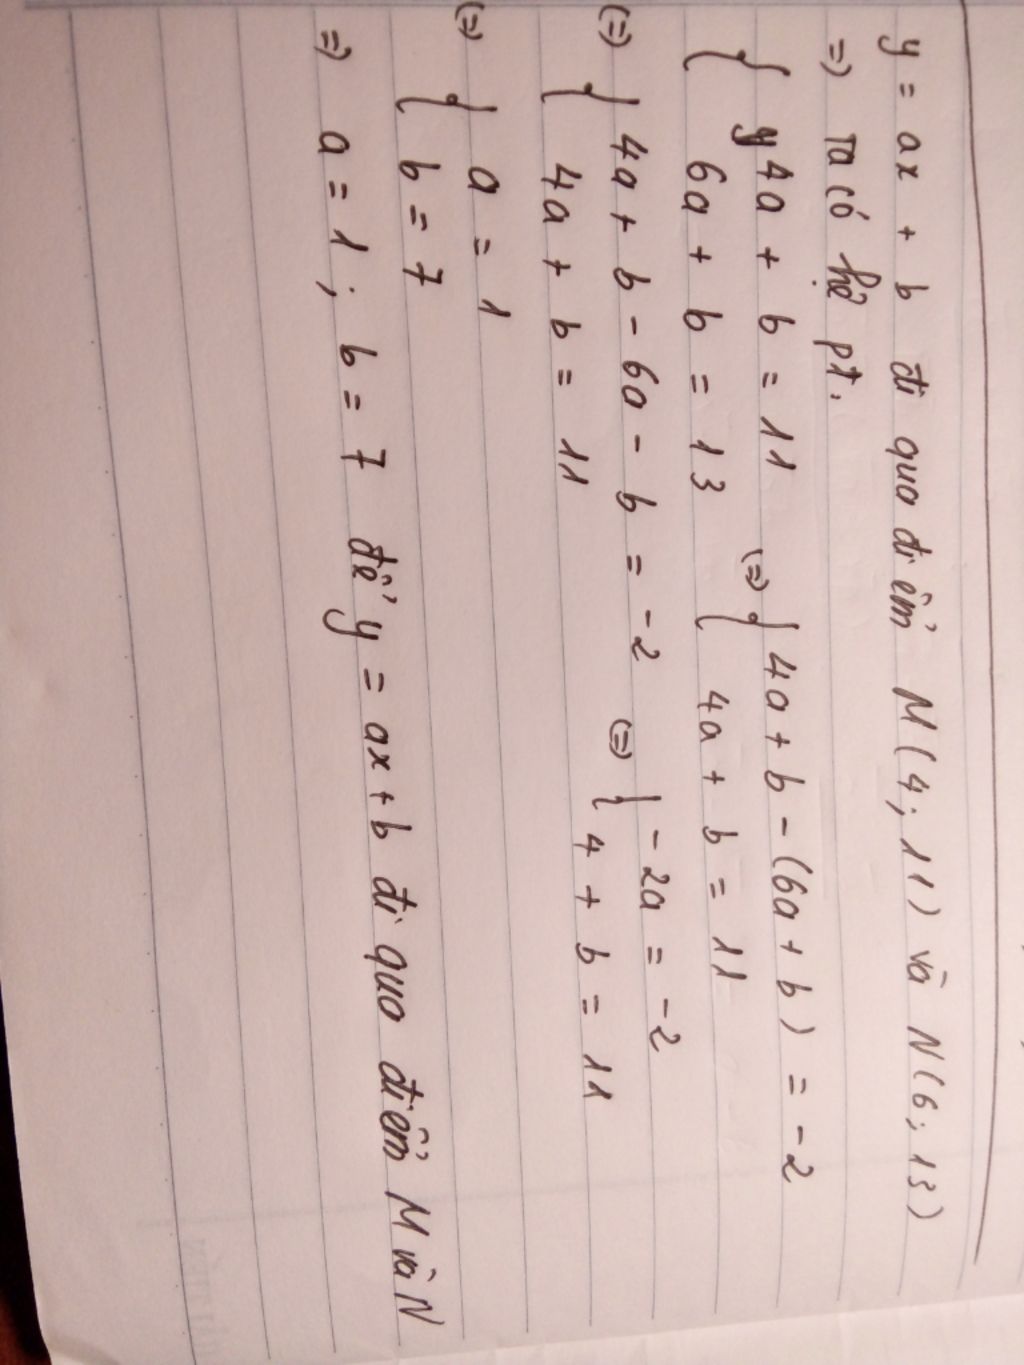 y = ax + b đi qua điểm M(4; 11) và N(6; 13)
=) Ta có hệ pt.
{ 4a + b = 11 (=) { 4a + b - (6a + b) = -2
6a + b = 13 4a + b = 11
(=) { 4a + b - 6a - b = -2 (=) { -2a = -2
4a + b = 11 4 + b = 11
(=) { a = 1
b = 7
=) a = 1 ; b = 7 để y = ax + b đi qua điểm M và N